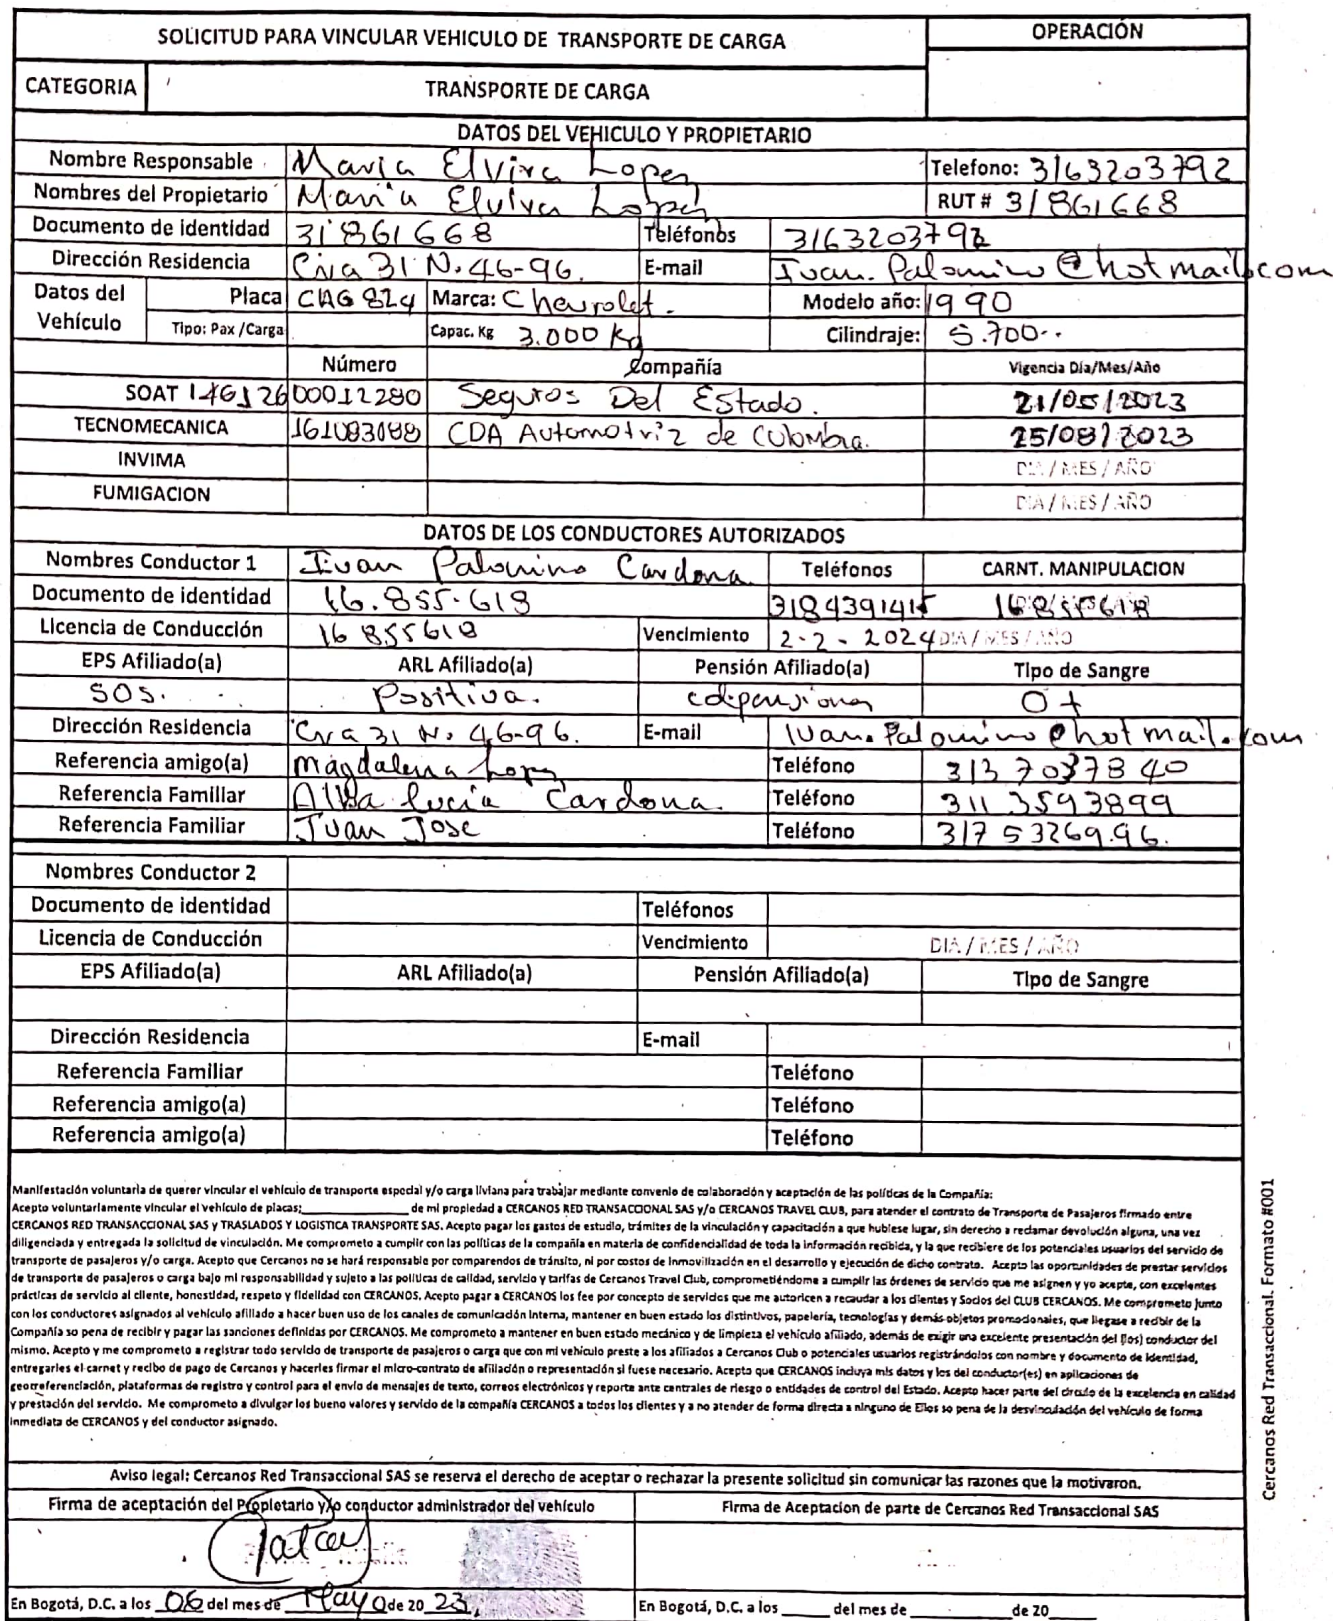 SOLICITUD PARA VINCULAR VEHICULO DE TRANSPORTE DE CARGA
OPERACIÓN
CATEGORIA TRANSPORTE DE CARGA
DATOS DEL VEHICULO Y PROPIETARIO
Nombre Responsable Maria Elvira Lopez Telefono: 3163203792
Nombres del Propietario Maria Elvira Lopez RUT # 31861668
Documento de identidad 31861668 Teléfonos 3163203792
Dirección Residencia Cra 31 N. 46-96. E-mail Ivan.Palomino@hotmail.com
Datos del Vehículo Placa CAG 824 Marca: Chevrolet. Modelo año: 1990
Tipo: Pax /Carga Capac. Kg 3.000 Kg Cilindraje: 5.700..
Número Compañía Vigencia Dia/Mes/Año
SOAT 14612600012280 Seguros Del Estado. 21/05/2023
TECNOMECANICA 161083088 CDA Automotriz de Colombia. 25/08/2023
INVIMA DIA / MES / AÑO
FUMIGACION DIA / MES / AÑO
DATOS DE LOS CONDUCTORES AUTORIZADOS
Nombres Conductor 1 Ivan Palomino Cardona Teléfonos CARNT. MANIPULACION
Documento de identidad 16.855.618 3184391415 16855618
Licencia de Conducción 16855618 Vencimiento 2-2-2024 DIA / MES / AÑO
EPS Afiliado(a) ARL Afiliado(a) Pensión Afiliado(a) Tipo de Sangre
SOS. Positiva. colpensiones O+
Dirección Residencia Cra 31 N. 46-96. E-mail Ivan.Palomino@hotmail.com
Referencia amigo(a) Magdalena Lopez Teléfono 313 7037840
Referencia Familiar Alba Lucia Cardona. Teléfono 311 3593899
Referencia Familiar Juan Jose Teléfono 317 5326996.
Nombres Conductor 2
Documento de identidad Teléfonos
Licencia de Conducción Vencimiento DIA / MES / AÑO
EPS Afiliado(a) ARL Afiliado(a) Pensión Afiliado(a) Tipo de Sangre
Dirección Residencia E-mail
Referencia Familiar Teléfono
Referencia amigo(a) Teléfono
Referencia amigo(a) Teléfono
Manifestación voluntaria de querer vincular el vehículo de transporte especial y/o carga liviana para trabajar mediante convenio de colaboración y aceptación de las políticas de la Compañía:
Acepto voluntariamente vincular el vehículo de placas;____________ de mi propiedad a CERCANOS RED TRANSACCIONAL SAS y/o CERCANOS TRAVEL CLUB, para atender el contrato de Transporte de Pasajeros firmado entre
CERCANOS RED TRANSACCIONAL SAS y TRASLADOS Y LOGISTICA TRANSPORTE SAS. Acepto pagar los gastos de estudio, trámites de la vinculación y capacitación a que hubiese lugar, sin derecho a reclamar devolución alguna, una vez
diligenciada y entregada la solicitud de vinculación. Me comprometo a cumplir con las políticas de la compañía en materia de confidencialidad de toda la información recibida, y la que recibiere de los potenciales usuarios del servicio de
transporte de pasajeros y/o carga. Acepto que Cercanos no se hará responsable por comparendos de tránsito, ni por costos de inmovilización en el desarrollo y ejecución de dicho contrato. Acepto las oportunidades de prestar servicios
de transporte de pasajeros o carga bajo mi responsabilidad y sujeto a las políticas de calidad, servicio y tarifas de Cercanos Travel Club, comprometiéndome a cumplir las órdenes de servicio que me asignen y yo acepte, con excelentes
prácticas de servicio al cliente, honestidad, respeto y fidelidad con CERCANOS. Acepto pagar a CERCANOS los fee por concepto de servicios que me autoricen a recaudar a los clientes y Socios del CLUB CERCANOS. Me comprometo junto
con los conductores asignados al vehículo afiliado a hacer buen uso de los canales de comunicación interna, mantener en buen estado los distintivos, papelería, tecnologías y demás objetos promocionales, que llegase a recibir de la
Compañía so pena de recibir y pagar las sanciones definidas por CERCANOS. Me comprometo a mantener en buen estado mecánico y de limpieza el vehículo afiliado, además de exigir una excelente presentación del (los) conductor del
mismo. Acepto y me comprometo a registrar todo servicio de transporte de pasajeros o carga que con mi vehículo preste a los afiliados a Cercanos Club o potenciales usuarios registrándolos con nombre y documento de identidad,
entregarles el carnet y recibo de pago de Cercanos y hacerles firmar el micro-contrato de afiliación o representación si fuese necesario. Acepto que CERCANOS incluya mis datos y los del conductor(es) en aplicaciones de
georreferenciación, plataformas de registro y control para el envío de mensajes de texto, correos electrónicos y reporte ante centrales de riesgo o entidades de control del Estado. Acepto hacer parte del circulo de la excelencia en calidad
y prestación del servicio. Me comprometo a divulgar los bueno valores y servicio de la compañía CERCANOS a todos los clientes y a no atender de forma directa a ninguno de Ellos so pena de la desvinculación del vehículo de forma
inmediata de CERCANOS y del conductor asignado.
Aviso legal: Cercanos Red Transaccional SAS se reserva el derecho de aceptar o rechazar la presente solicitud sin comunicar las razones que la motivaron.
Firma de aceptación del Propietario y/o conductor administrador del vehículo Firma de Aceptacion de parte de Cercanos Red Transaccional SAS
En Bogotá, D.C. a los 06 del mes de Mayo de 20 23, En Bogotá, D.C. a los _____ del mes de __________ de 20_____
Cercanos Red Transaccional. Formato #001